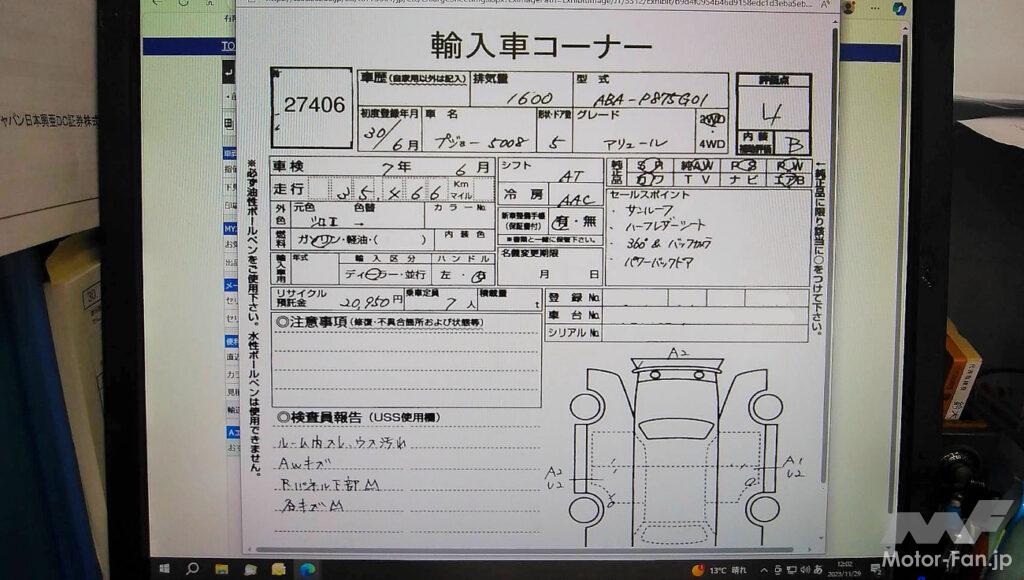 輸入車コーナー
27406
車歴(自家用以外は記入)
排気量
1600
型式
ABA-P875G01
評価点
4
内装
B
初度登録年月
30/6月
車名
プジョー 5008
形状・ドア数
5
グレード
アリュール
2WD
4WD
車検
7年 6月
シフト
AT
走行
35,466
Km
マイル
冷房
AAC
純正品
純AW
TV
ナビ
外色
元色
色替
カラーNo.
新車整備手帳
(保証書付)
有・無
※書類と一緒に保管下さい。
燃料
ガソリン・軽油・( )
内装色
名義変更期限
月 日
輸入車用
年式
輸入区分
ディーラー・並行
ハンドル
左・右
セールスポイント
・サンルーフ
・ハーフレザーシート
・360°& バックカメラ
・パワーバックドア
リサイクル
預託金
20,950円
乗車定員
7人
積載量
t
登録No.
車台No.
シリアルNo.
◎注意事項(修復・不具合箇所および状態等)
◎検査員報告(USS使用欄)
ルーム内スレ、ウス汚れ
AWキズ
Rパネル下部凹
各キズ凹
A2
A2
U2
A1
U2
※必ず油性ボールペンをご使用下さい。水性ボールペンは使用できません。
←純正品に限り該当に○をつけて下さい。
ャパン日本興亜DC証券株式
13℃ 晴れ
12:02
2023/11/29
Motor-Fan.jp